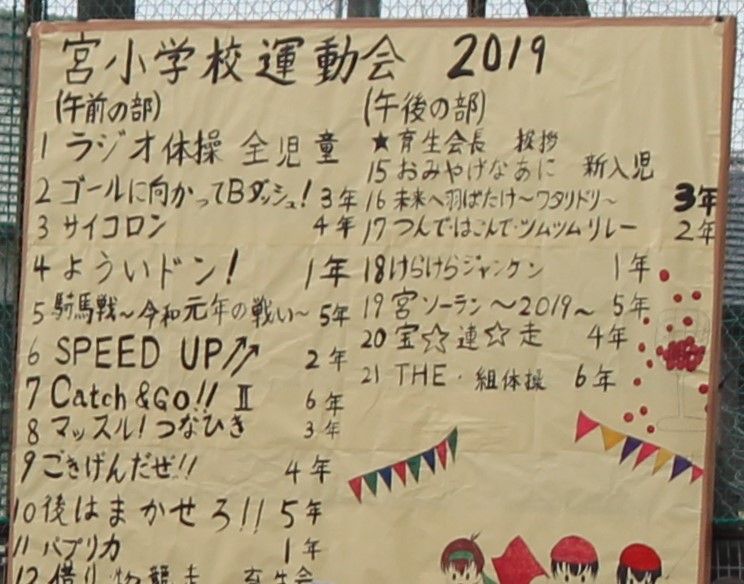 宮小学校運動会 2019
(午前の部)
1 ラジオ体操 全児童
2 ゴールに向かってBダッシュ! 3年
3 サイコロン 4年
4 よういドン! 1年
5 騎馬戦~令和元年の戦い~ 5年
6 SPEED UP↗↗ 2年
7 Catch&Go!! Ⅱ 6年
8 マッスル!つなひき 3年
9 ごきげんだぜ!! 4年
10 後はまかせろ!! 5年
11 パプリカ 1年
12 借り物競走 育生会
(午後の部)
★育生会長 挨拶
15 おみやげなあに 新入児
16 未来へ羽ばたけ~ワタリドリ~ 3年
17 つんで・はこんで・ツムツムリレー 2年
18 けらけらジャンケン 1年
19 宮ソーラン~2019~ 5年
20 宝☆連☆走 4年
21 THE・組体操 6年